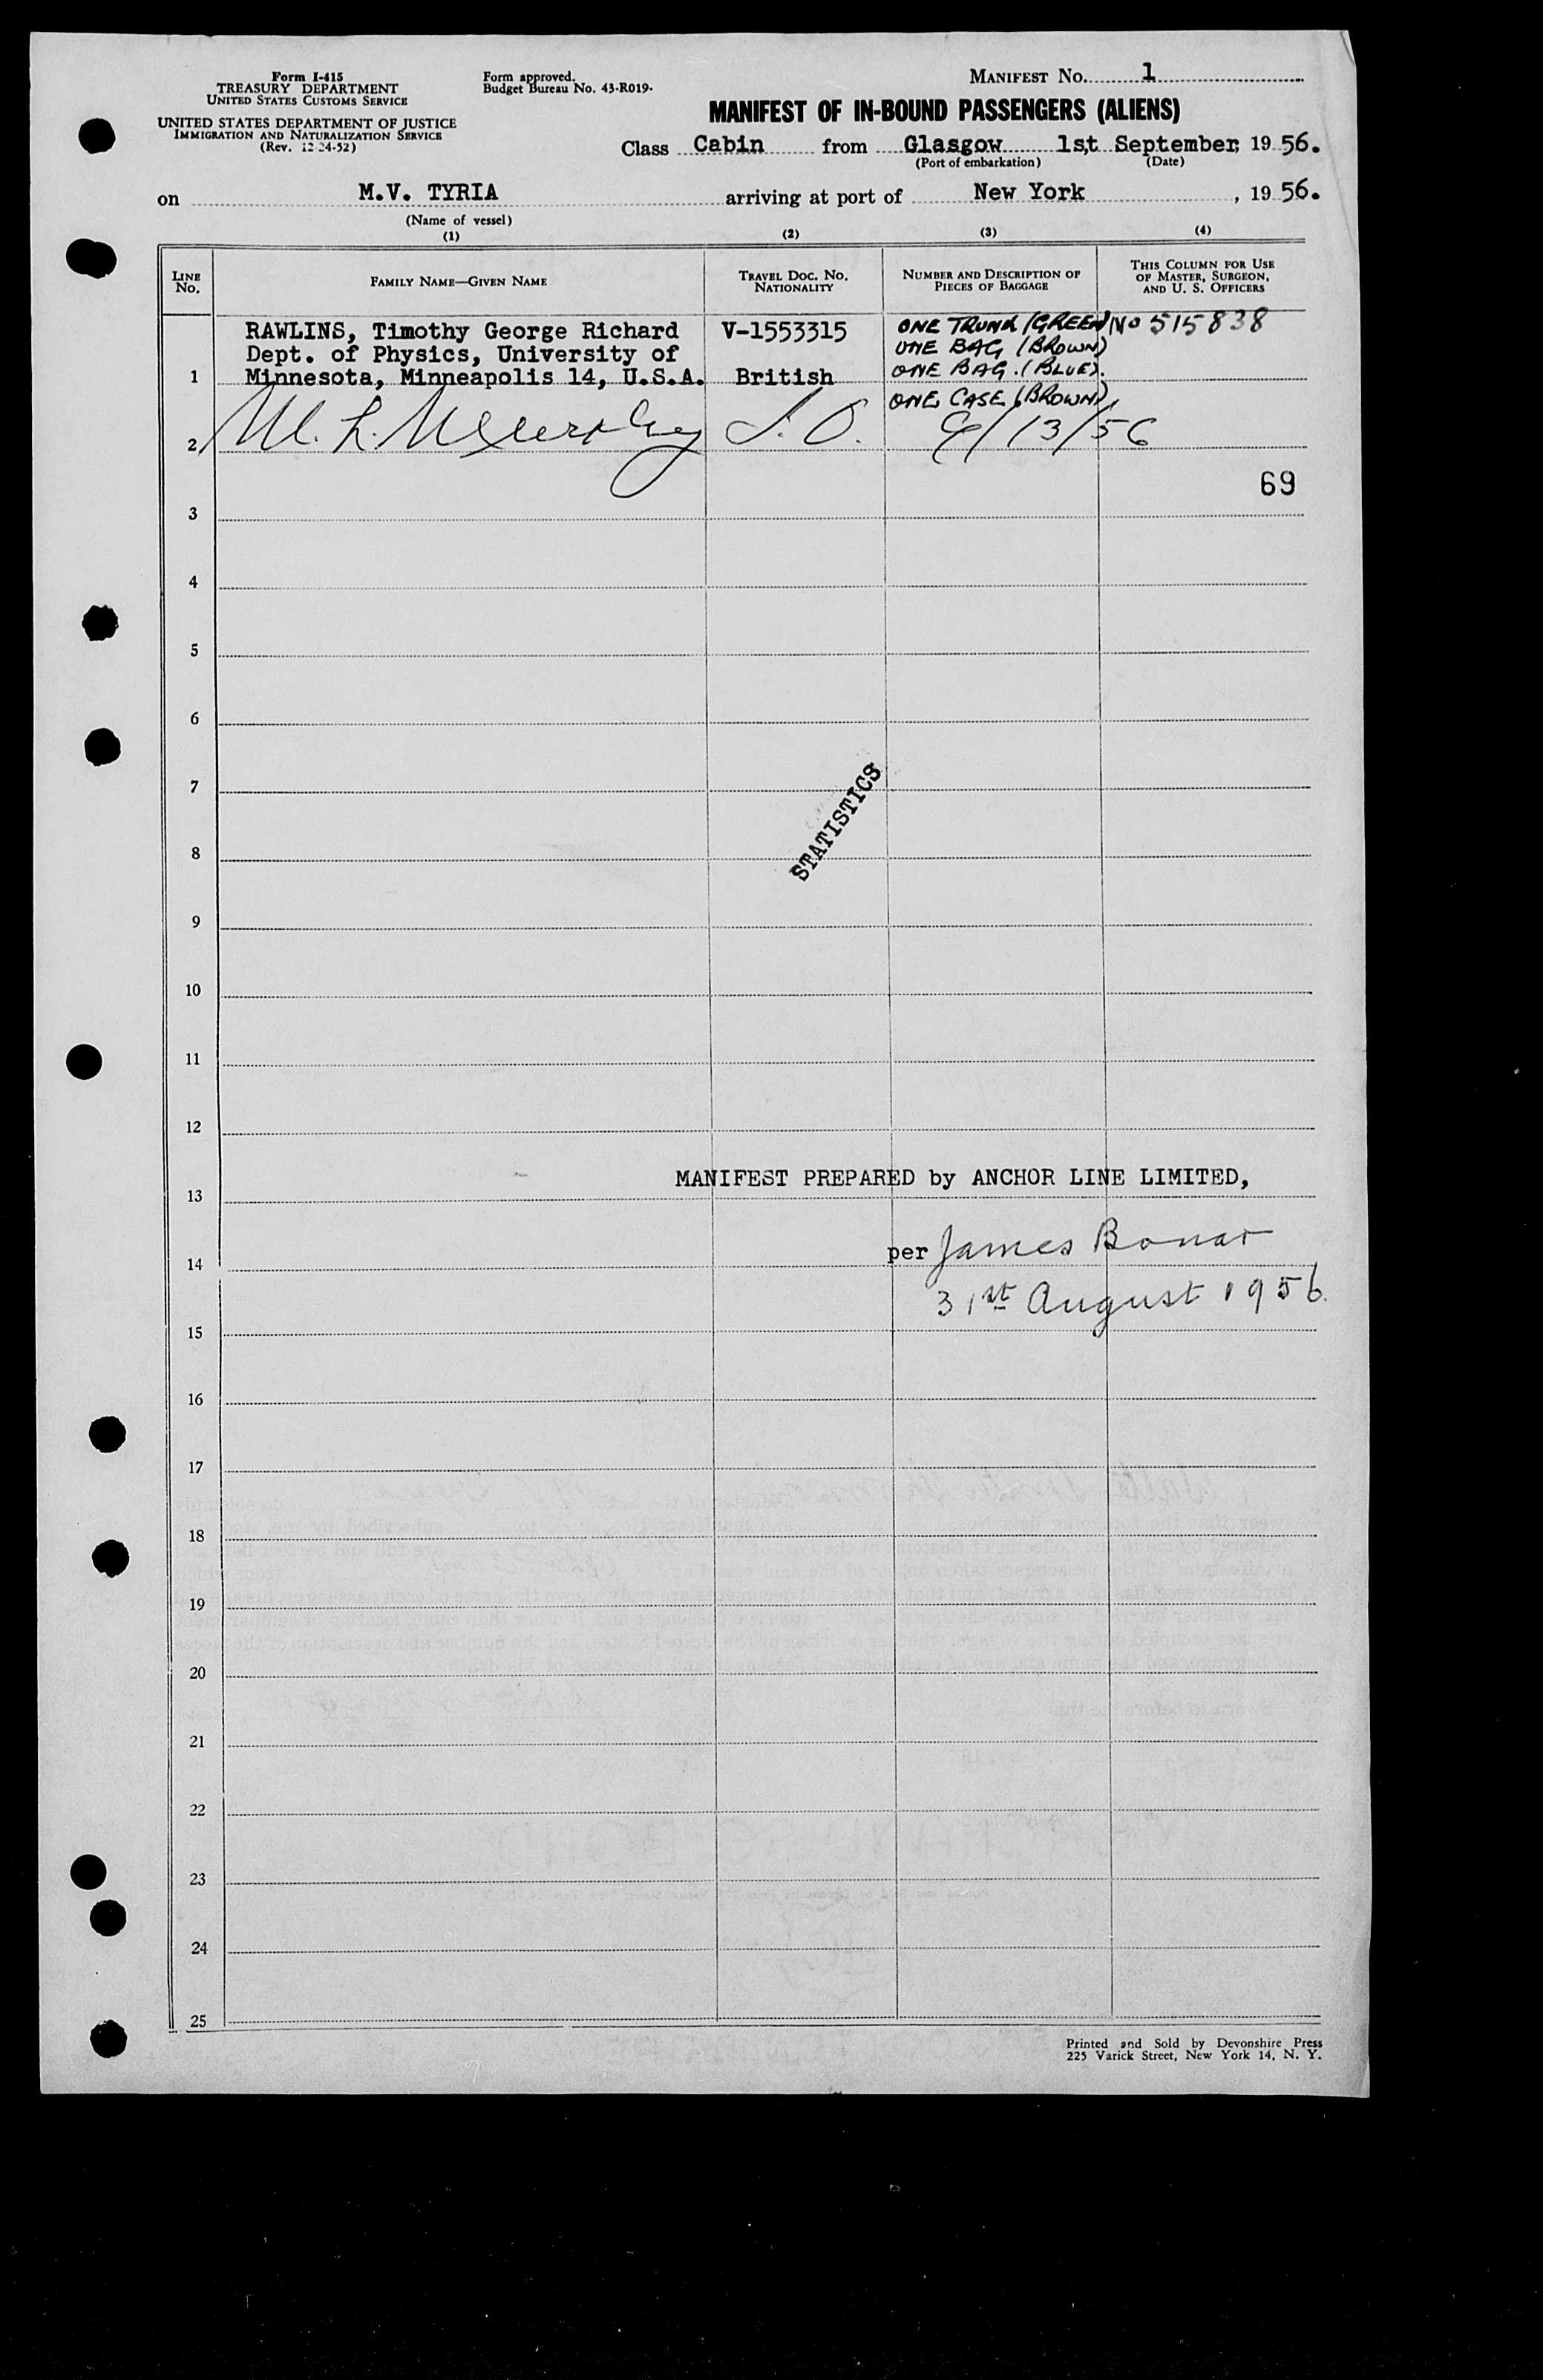 Form I-415
TREASURY DEPARTMENT
UNITED STATES CUSTOMS SERVICE
UNITED STATES DEPARTMENT OF JUSTICE
IMMIGRATION AND NATURALIZATION SERVICE
(Rev. 12-24-52)
Form approved.
Budget Bureau No. 43-R019.
MANIFEST No. 1
MANIFEST OF IN-BOUND PASSENGERS (ALIENS)
Class Cabin from Glasgow 1st September, 19 56.
(Port of embarkation) (Date)
on M.V. TYRIA arriving at port of New York, 19 56.
(Name of vessel)
(1) (2) (3) (4)
LINE No.
FAMILY NAME—GIVEN NAME
TRAVEL DOC. NO. NATIONALITY
NUMBER AND DESCRIPTION OF PIECES OF BAGGAGE
THIS COLUMN FOR USE OF MASTER, SURGEON, AND U. S. OFFICERS
RAWLINS, Timothy George Richard V-1553315 ONE TRUNK (GREEN) No 515838
Dept. of Physics, University of ONE BAG (BROWN)
1 Minnesota, Minneapolis 14, U.S.A. British ONE BAG. (BLUE).
ONE CASE (BROWN)
2 M. L. Murphy I.O. 9/13/56
69
3
4
5
6
7
STATISTICS
8
9
10
11
12
MANIFEST PREPARED by ANCHOR LINE LIMITED,
13
per James Bonar
14
31st August 1956.
15
16
17
18
19
20
21
22
23
24
25
Printed and Sold by Devonshire Press
225 Varick Street, New York 14, N. Y.